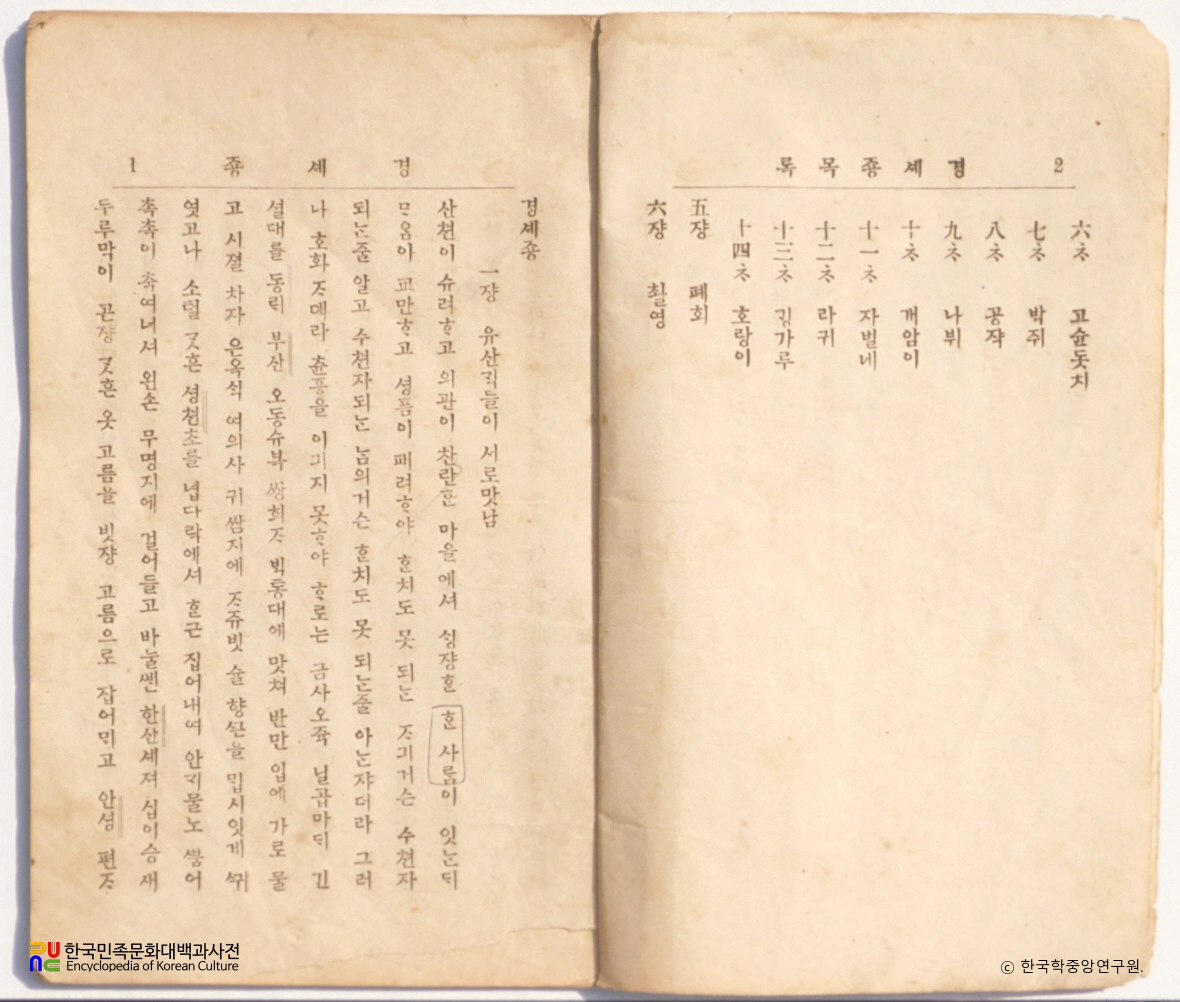 2 경셰죵목록
六츠 고슌돗치
七츠 박쥐
八츠 공쟉
九츠 나뷔
十츠 개암이
十一츠 자벌네
十二츠 라귀
十三츠 림가루
十四츠 호랑이
五쟝 폐회
六쟝 최영
경셰죵 1
경셰죵
一쟝 유산ᄀᆡᆨ들이 서로맛남
산쳔이 슈려ᄒᆞ고 의관이 찬란ᄒᆞᆫ 마을에셔 싱쟝ᄒᆞᆫ ᄒᆞᆫ 사ᄅᆞᆷ이 잇ᄂᆞᆫᄃᆡ
ᄆᆞ음아 교만ᄒᆞ고 셩픔이 패려ᄒᆞ야 ᄒᆞᆫ치도 못 되ᄂᆞᆫ ᄌᆞ긔거슨 수쳔자
되ᄂᆞᆫ줄 알고 수쳔자되ᄂᆞᆫ ᄂᆞᆷ의거슨 ᄒᆞᆫ치도 못 되ᄂᆞᆫ줄 아ᄂᆞᆫ쟈더라 그러
나 호화 ᄌᆞ뎨라 츈흥을 이긔지 못ᄒᆞ야 ᄒᆞ로는 금사오쥭 닐곱마ᄃᆡ 긴
셜대를 동ᄅᆡ 부산 오동슈복 쌍희ᄌᆞ ᄇᆡᆨ통대에 맛쳐 반만 입에 가로 물
고 시졀 차자 은옥ᄉᆡᆨ 여의사 귀 쌈지에 ᄌᆞ쥬빗 슐 향ᄭᅳᆫ을 밉시잇게 ᄭᅱ
엿고나 소털 ᄀᆞᆺ흔 셩쳔초를 넙다락에셔 ᄒᆞᆫ근 집어내여 안ᄀᆡ물노 ᄲᅮᆷ어
츅츅이 츅여너셔 왼손 무명지에 걸어들고 바눌ᄲᅦᆫ 한산셰져 십이승 새
두루막이 곤쟝 ᄀᆞᆺ흔 옷 고름을 빗쟝 고름으로 잡어ᄆᆡ고 안셩 편ᄌᆞ
한국민족문화대백과사전
Encyclopedia of Korean Culture
ⓒ 한국학중앙연구원.